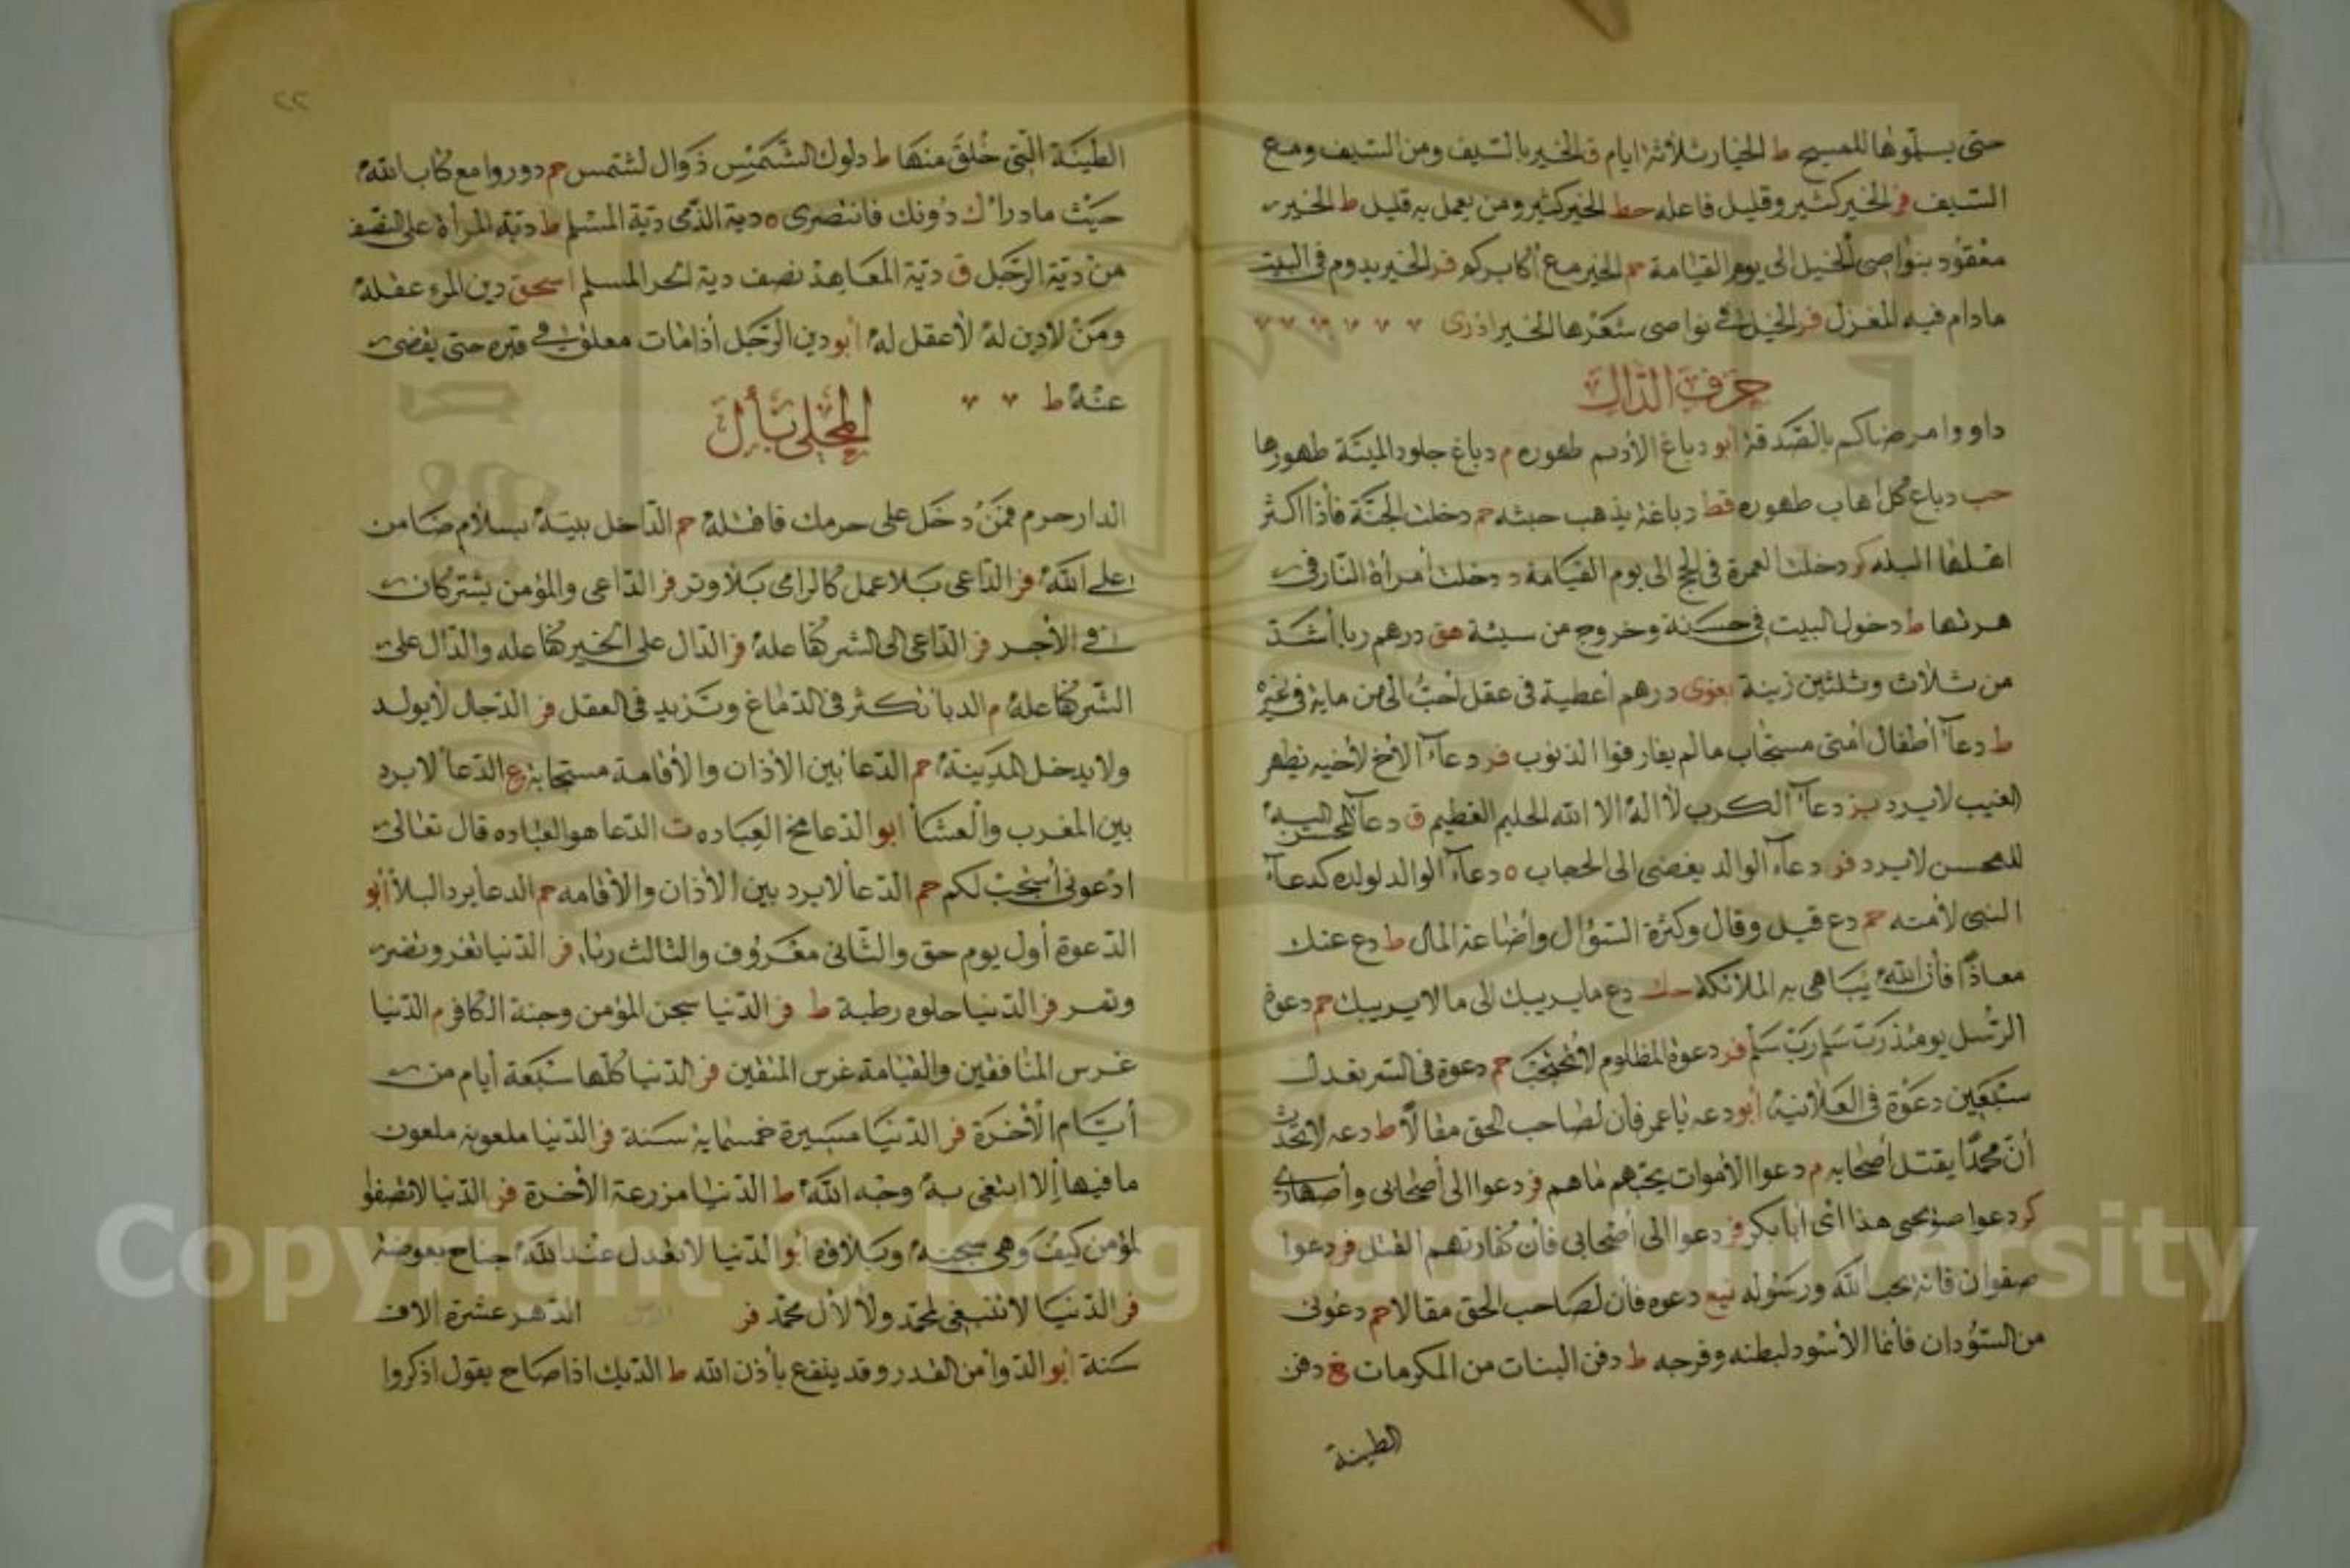 حتى يسلموها للمسيح ط الخيار ثلاثة ايام ق الخير بالسيف ومن السيف ومع
السيف فر الخير كثير وقليل فاعله خط الخير كثير ومن يعمل به قليل ط الخير
معقود بنواصى الخيل الى يوم القيامة حم الخير مع أكابركم فر الخير يدوم فى البيت
مادام فيه المغزل فر الخيل فى نواصى شقرها الخير
حرف الدال
داووا مرضاكم بالصدقة أبو دباغ الأديم طهوره م دباغ جلود الميتة طهورها
حب دباغ كل اهاب طهوره قط دباغه يذهب خبثه حم دخلت الجنة فأذا اكثر
اهلها البله كر دخلت العمرة فى الحج الى يوم القيامة د دخلت أمرأة النار فى
هرتها ط دخول البيت فى حسنة وخروج من سيئة هق درهم ربا أشد
من ثلاث وثلثين زينة بغوى درهم أعطية فى عقل أحب الى من ماية فى غيره
ط دعآء أطفال أمتى مستجاب مالم يقارفوا الذنوب فر دعآء الأخ لأخيه بظهر
الغيب لايرد بز دعآء الكرب لا اله الا الله الحليم العظيم ق دعآء المحسن اليه
للمحسن لايرد فر دعآء الوالد يفضى الى الحجاب ه دعآء الوالد لولده كدعآء
النبى لأمته حم دع قيل وقال وكثرة السؤال وأضاعة المال ط دع عنك
معاذا فأن الله يباهى به الملائكة حك دع مايريبك الى مالايريبك حم دعوة
الرسل يومئذ رب سلم رب سلم فر دعوة المظلوم لاتحجب حم دعوة فى السر بعدل
سبعين دعوة فى العلانية أبو دعه ياعمر فان لصاحب الحق مقالا ط دعه لايتحدث
أن محمدا يقتل أصحابه م دعوا الأموات بحبهم ماهم فر دعوا الى أصحابى وأصهارى
كر دعوا صويحبى هذا اى أبا بكر فر دعوا الى أصحابى فأن كفارتهم القتل فر دعوا
صفوان فانه يحب الله ورسوله نيع دعوه فان لصاحب الحق مقالا حم دعونى
من السودان فأنما الأسود لبطنه وفرجه ط دفن البنات من المكرمات غ دفن
الطينة
٢٢
الطينة التى خلق منها ط دلوك الشمس زوال لشمس حم دوروا مع كتاب الله
حيث مادار ك دونك فانتصرى ه دية الذمى دية المسلم ط دية المرأة على النصف
من دية الرجل ق دية المعاهد نصف دية الحر المسلم اسحق دين المرء عقله
ومن لادين له لاعقل له أبو دين الرجل أذامات معلق فى قبره حتى يقضى
عنه ط
المحلى بأل
الدار حرم فمن دخل على حرمك فاقتله حم الداخل بيته بسلام ضامن
على الله فر الداعى بلا عمل كالرامى بلا وتر فر الداعى والمؤمن يشتركان
فى الأجر فر الداعى الى الشر كفاعله فر الدال على الخير كفاعله والدال على
الشر كفاعله م الدبا تكثر فى الدماغ وتزيد فى العقل فر الدجال لايولد
ولايدخل المدينة حم الدعا بين الأذان والأقامة مستجابة ع الدعا لايرد
بين المغرب والعشا أبو الدعا مخ العباده ت الدعا هو العباده قال تعالى
ادعونى أستجب لكم حم الدعا لايرد بين الأذان والأقامه حم الدعا يرد البلا أبو
الدعوة أول يوم حق والثانى معروف والثالث ريا، فر الدنيا تغر وتضر
وتمر فر الدنيا حلوه رطبة ط فر الدنيا سجن المؤمن وجنة الكافر م الدنيا
غرس المنافقين والقيامة غرس المتقين فر الدنيا كلها سبعة أيام من
أيام الأخرة فر الدنيا مسيرة خمسماية سنة فر الدنيا ملعونه ملعون
مافيها إلا ابتغى به وجه الله ط الدنيا مزرعة الأخرة فر الدنيا لاتصفوا
لمؤمن كيف وهى سجنه وبلاؤه أبو الدنيا لاتعدل عند الله جناح بعوضة
فر الدنيا لاتنبغى لمحمد ولا لأل محمد فر الدهر عشرة الاف
سنة أبو الدوا من القدر وقد ينفع بأذن الله ط الديك اذا صاح يقول اذكروا
Copyright © King Saud University